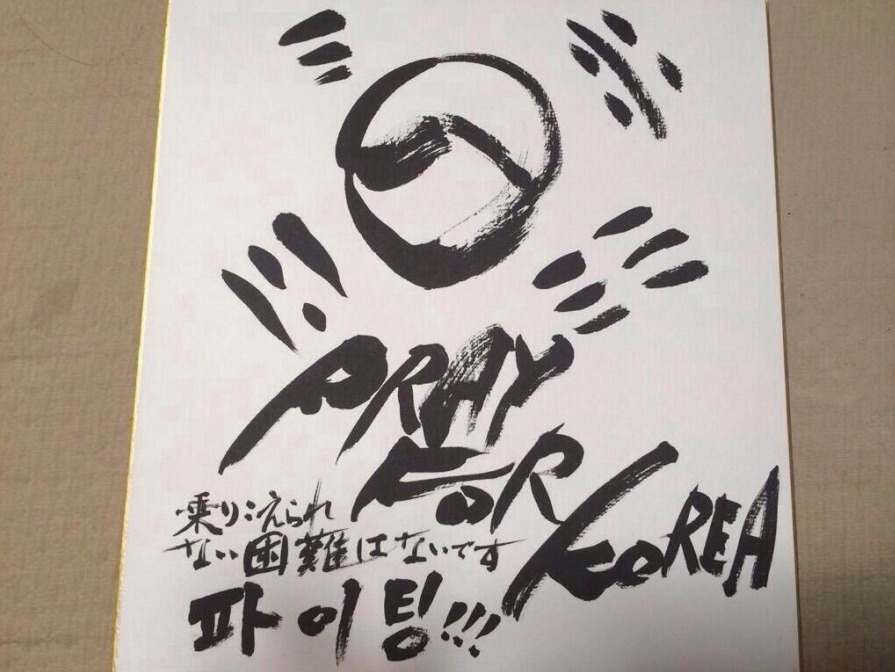 PRAY
FOR
KOREA
乗りこえられ
ない困難はないです
파이팅!!!